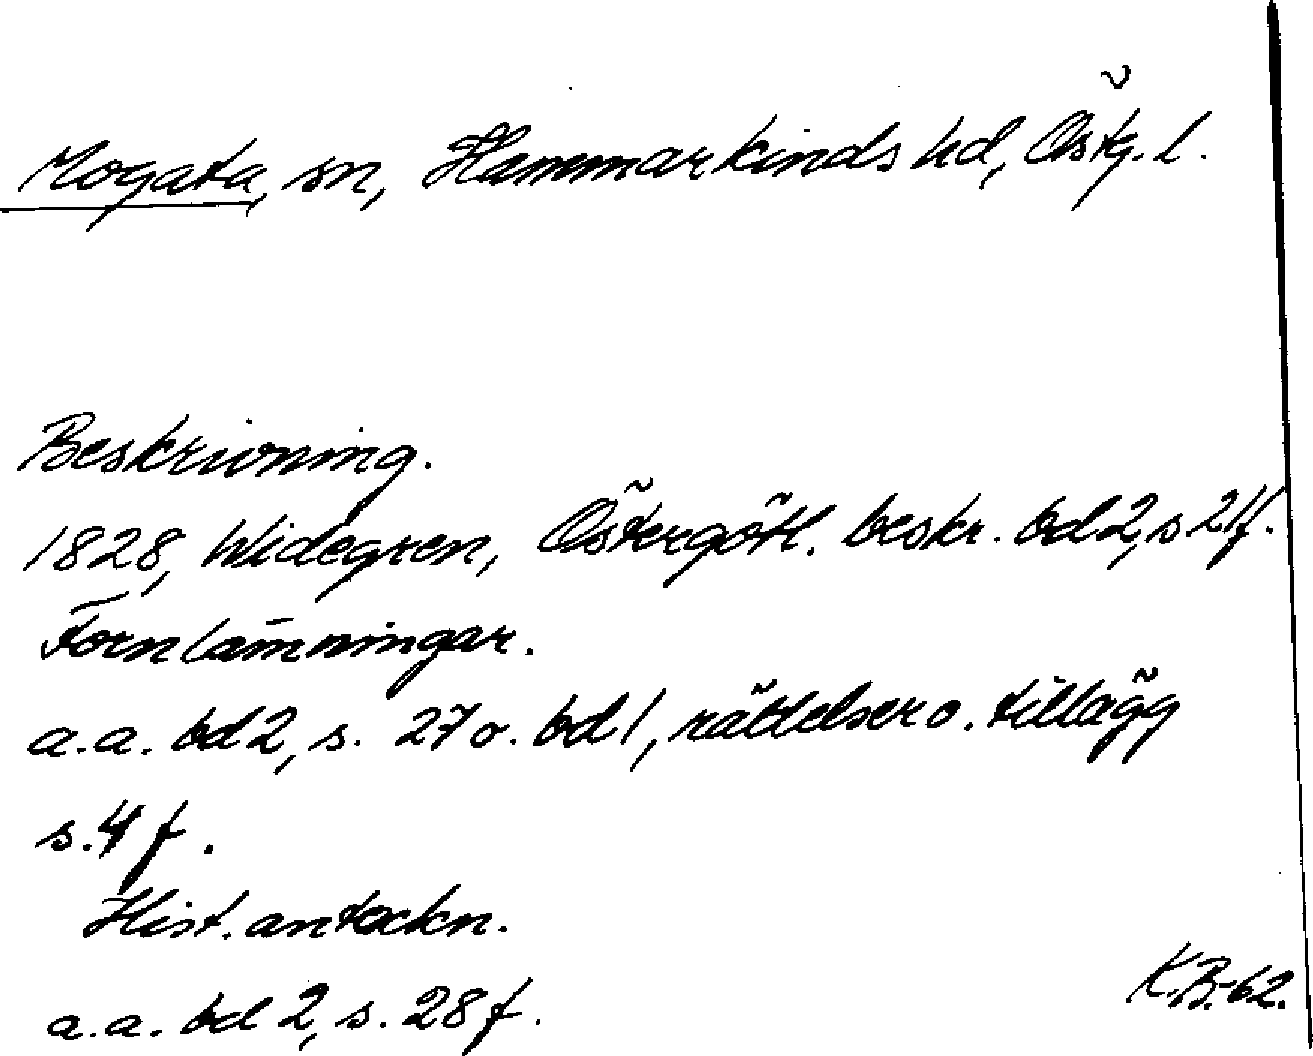 Mogata, sn, Hammarkinds hd, Östg. l.
Beskrivning.
1828, Widegren, Östergötl. beskr. bd 2, s. 21 f.
Fornlämningar.
a.a. bd 2, s. 27 o. bd 1, rättelser o. tillägg
s. 4 f.
Hist. anteckn.
a.a. bd 2, s. 28 f.
K.B.-62.